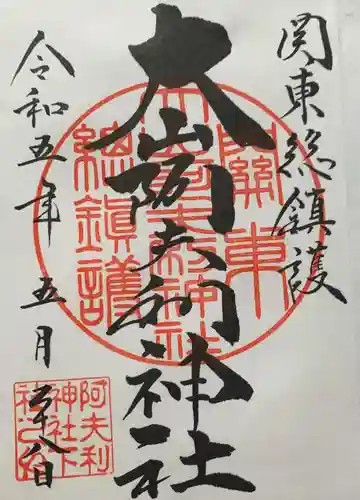 関東総鎮護
大山阿夫利神社
令和五年五月二十八日
關東
大山阿夫利神社
總鎮護
阿夫利
神社下
社